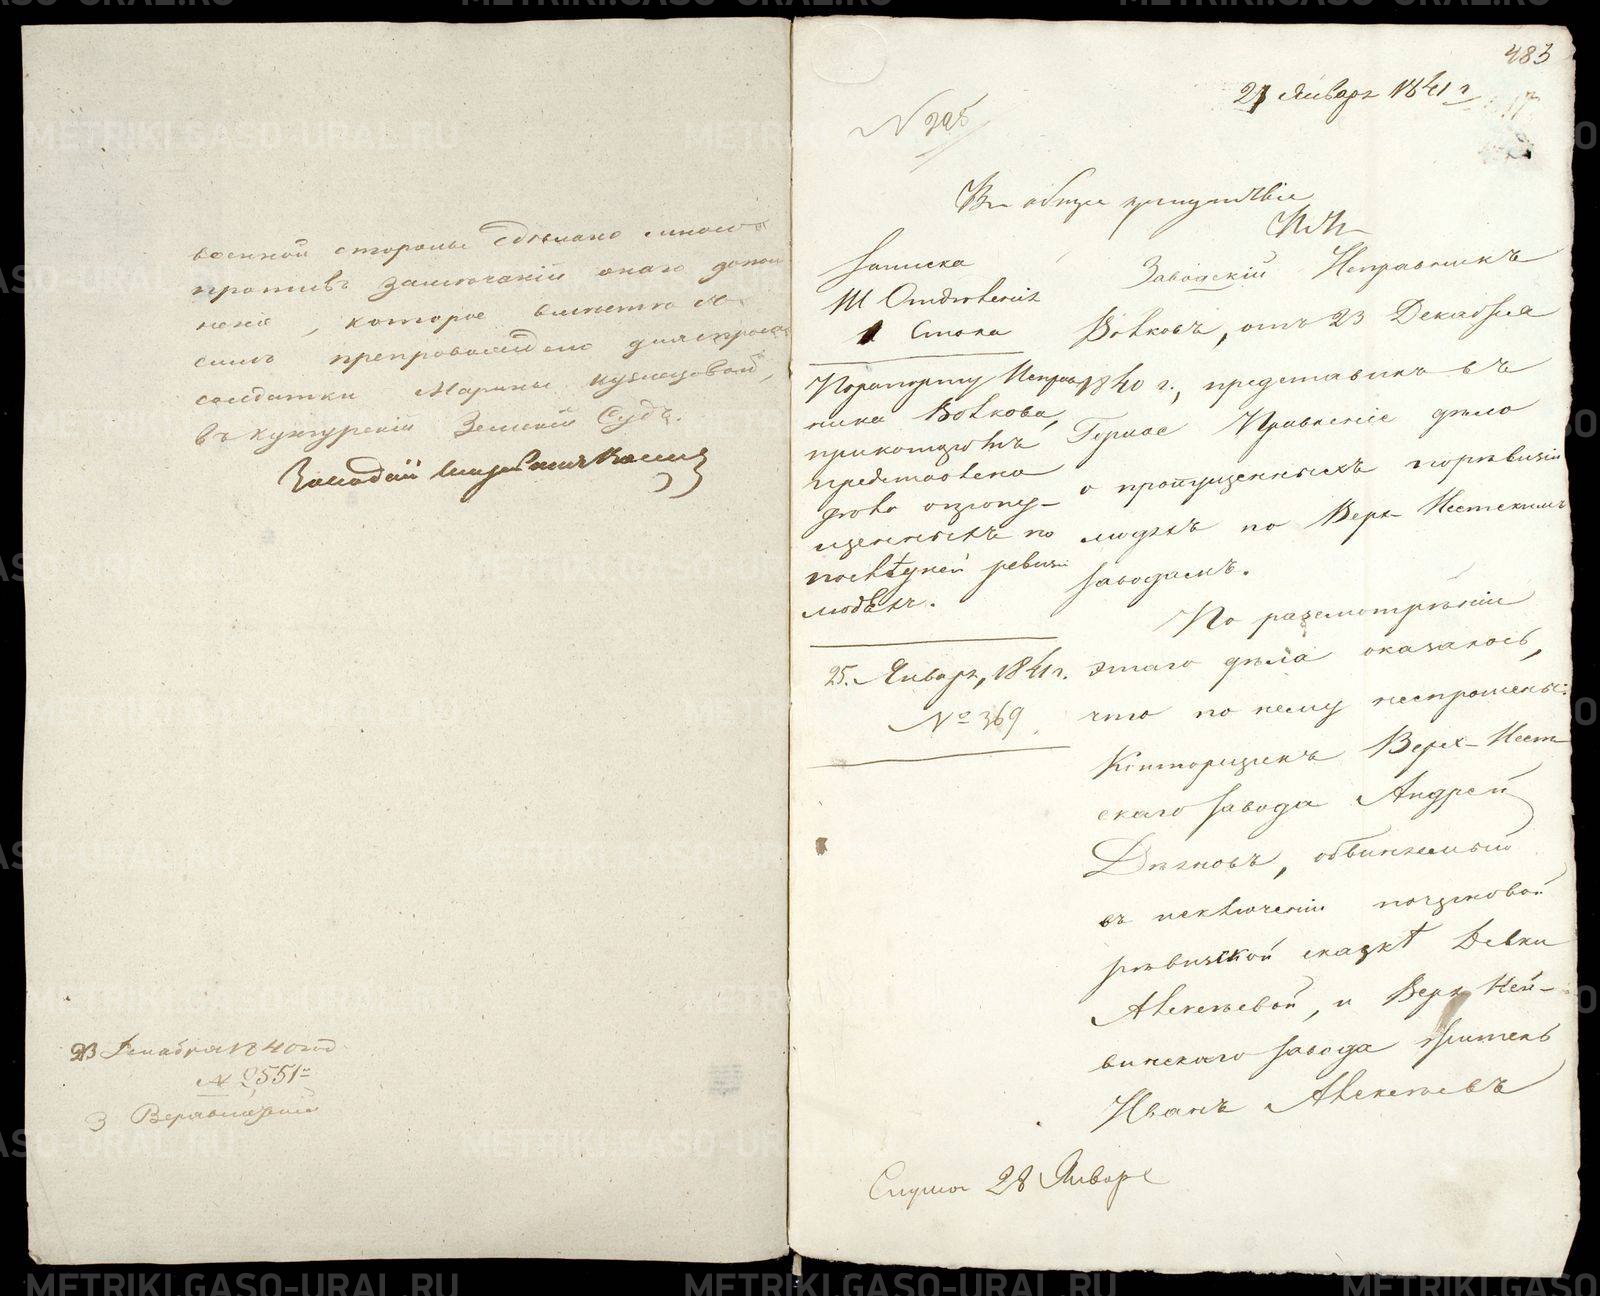 военной стороны сдѣлано
противъ замѣчанiй онаго допол
ненiе, которое вмѣстѣ съ
симъ препровождено для спроса
солдатки Марины Кузнецовой,
въ Кунгурскiй Земскiй Судъ.
23 Декабря 1840 год
№ 2551
483
21 Января 1841 г
№ 295
Въ общее присутствiе
Записка
III Отдѣленiя
1 Стола
По рапорту Исправ
ника Волкова,
при которомъ
представлено
дѣло о пропу-
щенныхъ по
послѣдней ревизiи
людяхъ.
25. Января, 1841 г.
№ 369
Заводскiй Исправникъ
Волковъ, отъ 23 Декабря
1840 г., представилъ въ
Горное Правленiе дѣло
о пропущенныхъ по ревизiи
людяхъ по Верх-Исетскимъ
заводамъ.
По разсмотрѣнiи
этаго дѣла оказалось,
что по нему неспрошены:
Конторщикъ Верх-Исет-
скаго завода Андрей
обвиняемый
въ исключенiи
ревизской сказкѣ Девки
Алексѣевой, и Верх Ней-
винскаго завода житель
Иванъ Алексѣевъ
Слушан 28 Января